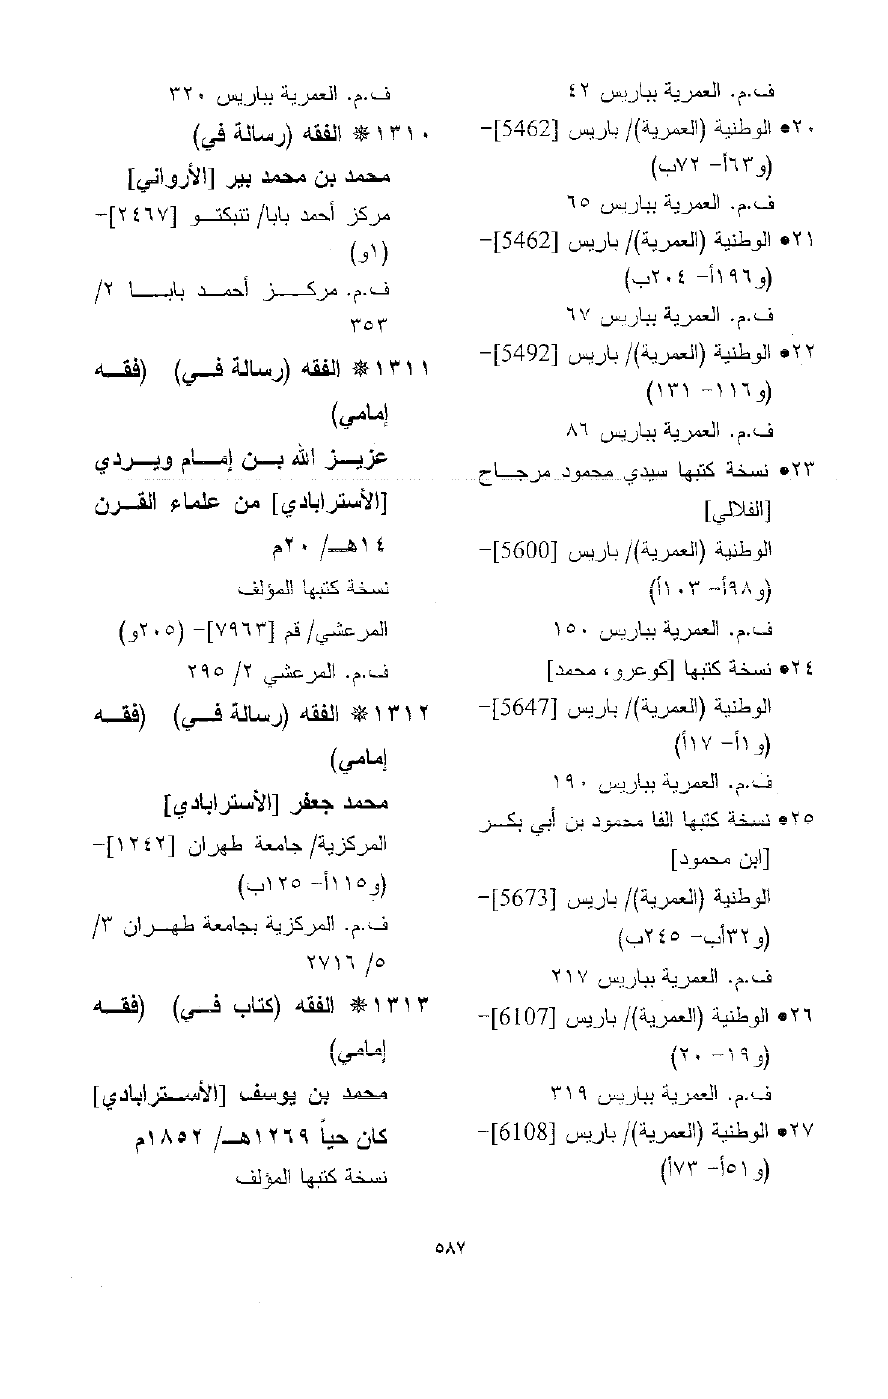 ف.م. العمرية بباريس ٤٢
٢٠• الوطنية (العمرية)/ باريس [5462]-
(و٦٣أ- ٧٢ب)
ف.م. العمرية بباريس ٦٥
٢١• الوطنية (العمرية)/ باريس [5462]-
(و١٩٦أ- ٢٠٤ب)
ف.م. العمرية بباريس ٦٧
٢٢• الوطنية (العمرية)/ باريس [5492]-
(و١١٦- ١٣١)
ف.م. العمرية بباريس ٨٦
٢٣• نسخة كتبها سيدي محمود مرجاح
[الفلالي]
الوطنية (العمرية)/ باريس [5600]-
(و٩٨أ- ١٠٣أ)
ف.م. العمرية بباريس ١٥٠
٢٤• نسخة كتبها [كوعرو، محمد]
الوطنية (العمرية)/ باريس [5647]-
(و١أ- ١٧أ)
ف.م. العمرية بباريس ١٩٠
٢٥• نسخة كتبها الفا محمود بن أبي بكر
[ابن محمود]
الوطنية (العمرية)/ باريس [5673]-
(و٣٢أب- ٢٤٥ب)
ف.م. العمرية بباريس ٢١٧
٢٦• الوطنية (العمرية)/ باريس [6107]-
(و١٩- ٢٠)
ف.م. العمرية بباريس ٣١٩
٢٧• الوطنية (العمرية)/ باريس [6108]-
(و٥١أ- ٧٣أ)
ف.م. العمرية بباريس ٣٢٠
١٣١٠* الفقه (رسالة في)
محمد بن محمد بير [الأرواني]
مركز أحمد بابا/ تنبكتو [٢٤٦٧]-
(١و)
ف.م. مركز أحمد بابا ٢/
٣٥٣
١٣١١* الفقه (رسالة في) (فقه
إمامي)
عزيز الله بن إمام ويردي
[الأسترابادي] من علماء القرن
١٤هـ/ ٢٠م
نسخة كتبها المؤلف
المرعشي/ قم [٧٩٦٣]- (٢٠٥و)
ف.م. المرعشي ٢/ ٢٩٥
١٣١٢* الفقه (رسالة في) (فقه
إمامي)
محمد جعفر [الأسترابادي]
المركزية/ جامعة طهران [١٢٤٢]-
(و١١٥أ- ١٢٥ب)
ف.م. المركزية بجامعة طهران ٣/
٥/ ٢٧١٦
١٣١٣* الفقه (كتاب في) (فقه
إمامي)
محمد بن يوسف [الأسترابادي]
كان حياً ١٢٦٩هـ/ ١٨٥٢م
نسخة كتبها المؤلف
٥٨٧